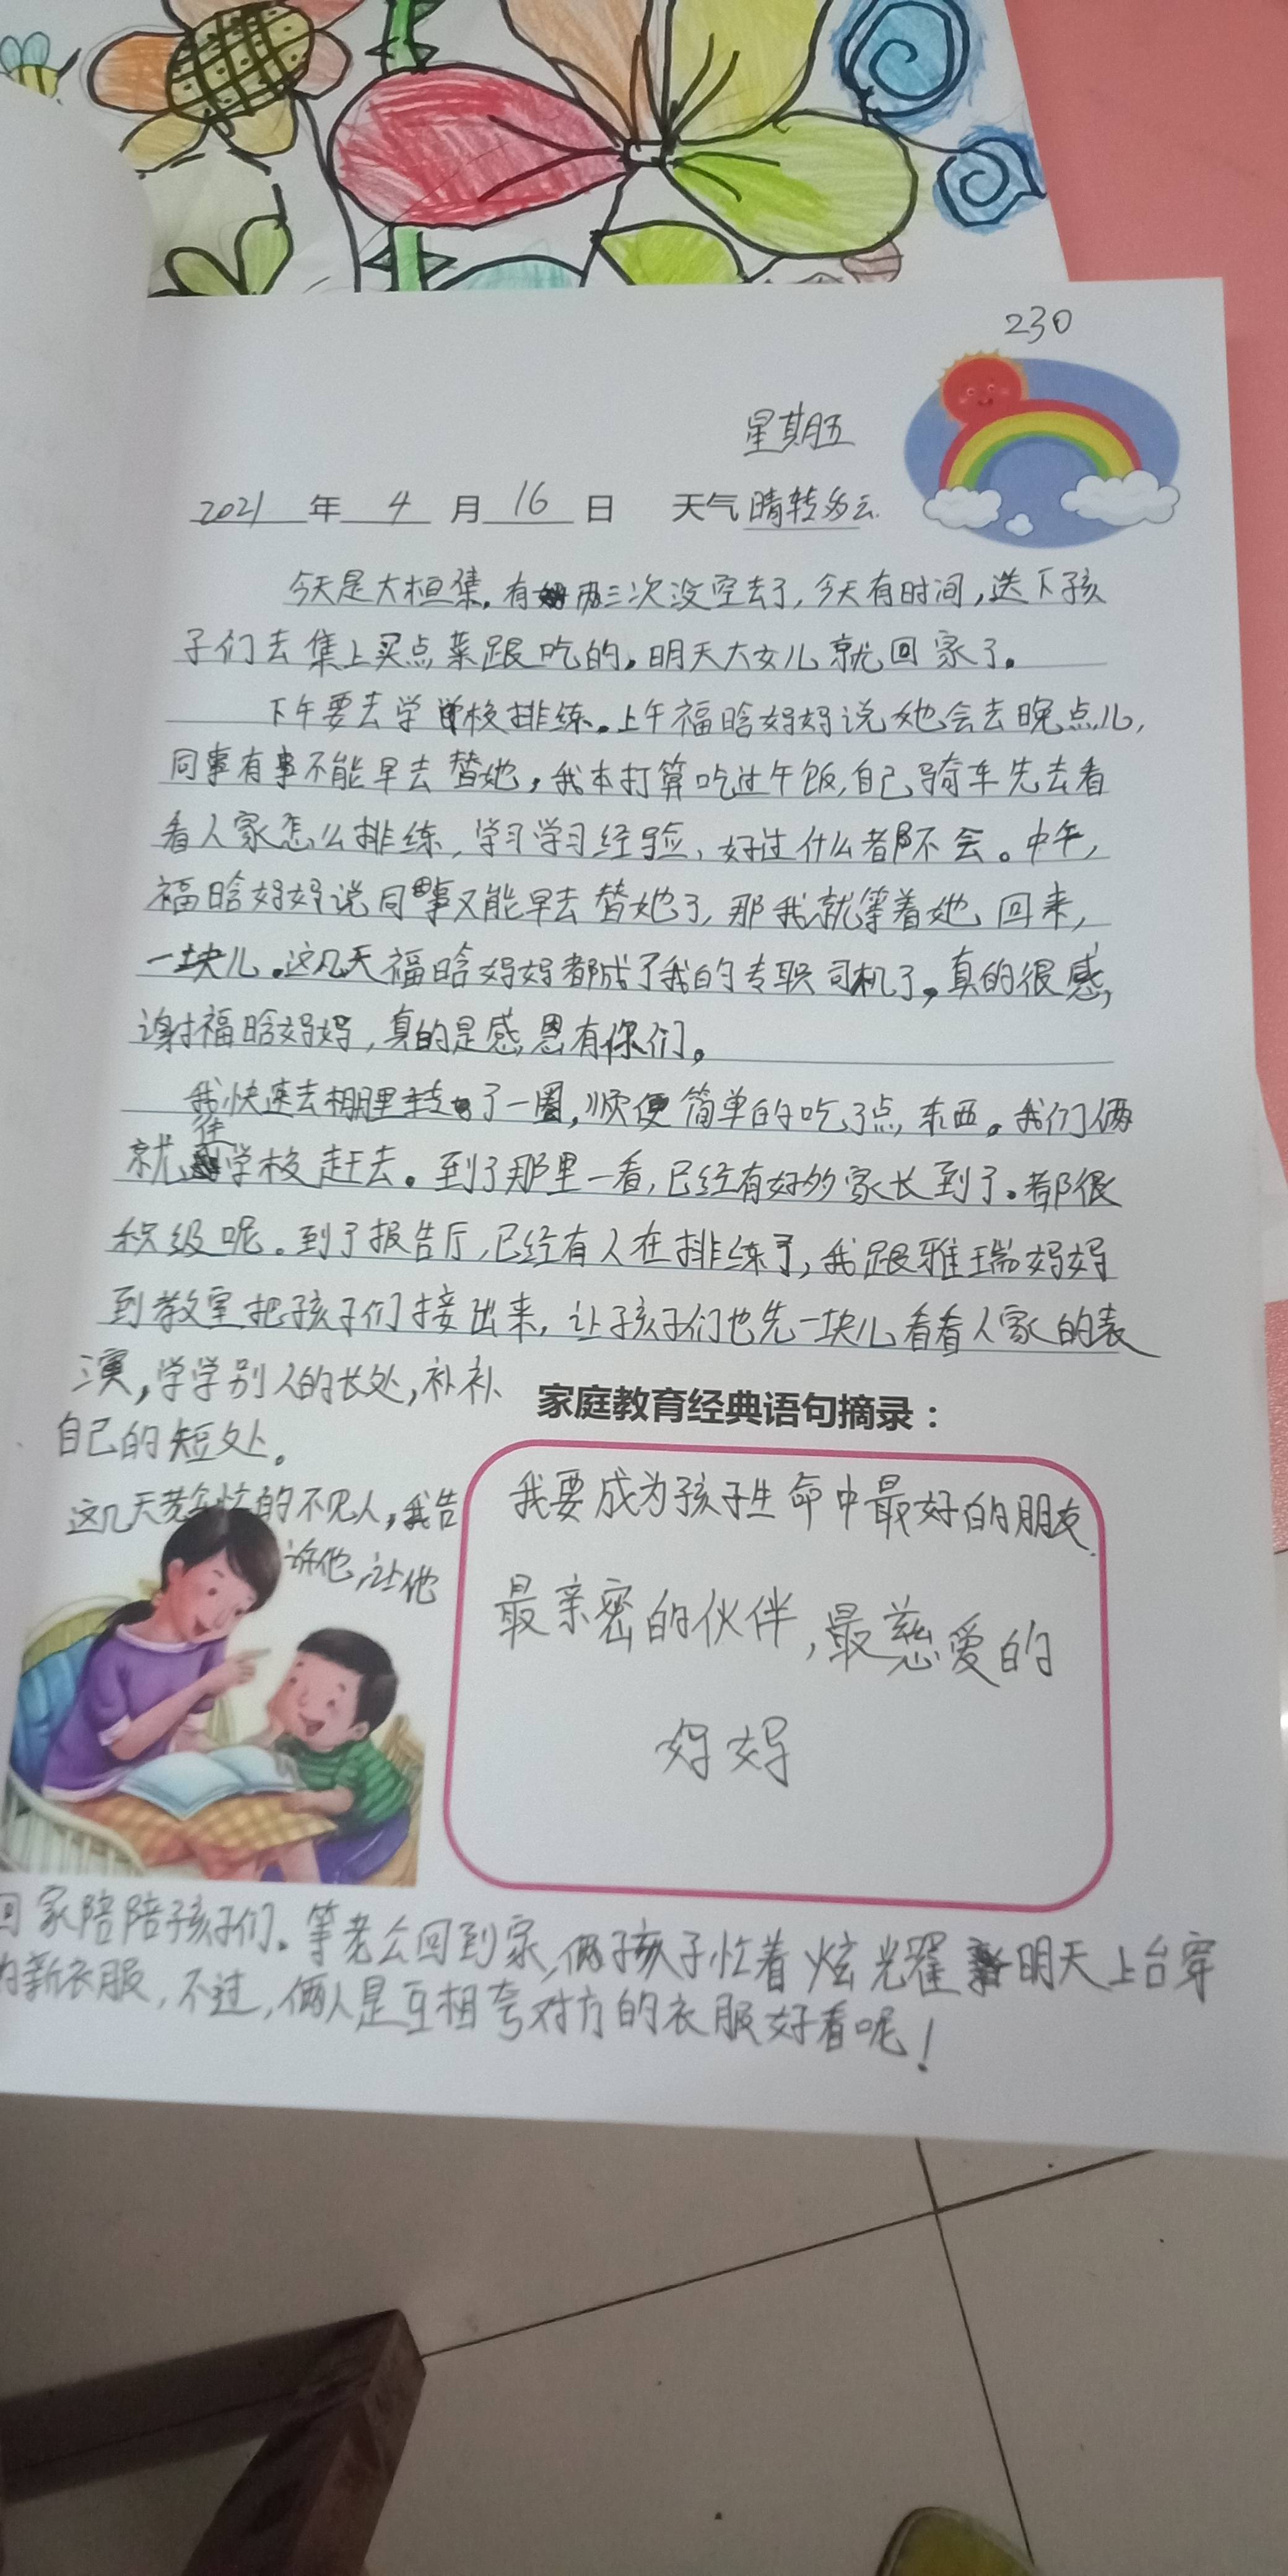 230
星期五
2021年4月16日 天气 晴转多云
今天是大桓集,有两三次没空去了,今天有时间,送下孩
子们去集上买点菜跟吃的。明天大女儿就回家了。
下午要去学校排练。上午福晗妈妈说她会去晚点儿,
同事有事不能早去替她,我本打算吃过午饭,自己骑车先去看
看人家怎么排练,学习学习经验,好过什么都不会。中午,
福晗妈妈说同事又能早去替她了,那我就等着她回来,
一块儿。这几天福晗妈妈都成了我的专职司机了,真的很感
谢福晗妈妈,真的是感恩有你们。
我快速去棚里转了一圈,顺便简单的吃了点东西。我们俩
就往学校赶去。到了那里一看,已经有好多家长到了。都很
积级呢。到了报告厅,已经有人在排练了,我跟雅瑞妈妈
到教室把孩子们接出来,让孩子们也先一块儿看看人家的表
演,学学别人的长处,补补
自己的短处。
家庭教育经典语句摘录:
我要成为孩子生命中最好的朋友
最亲密的伙伴,最慈爱的
妈妈
这几天老公忙的不见人,我告
诉他,让他
回家陪陪孩子们。等老公回到家,俩孩子忙着炫光耀明天上台穿
的新衣服,不过,俩人是互相夸对方的衣服好看呢!